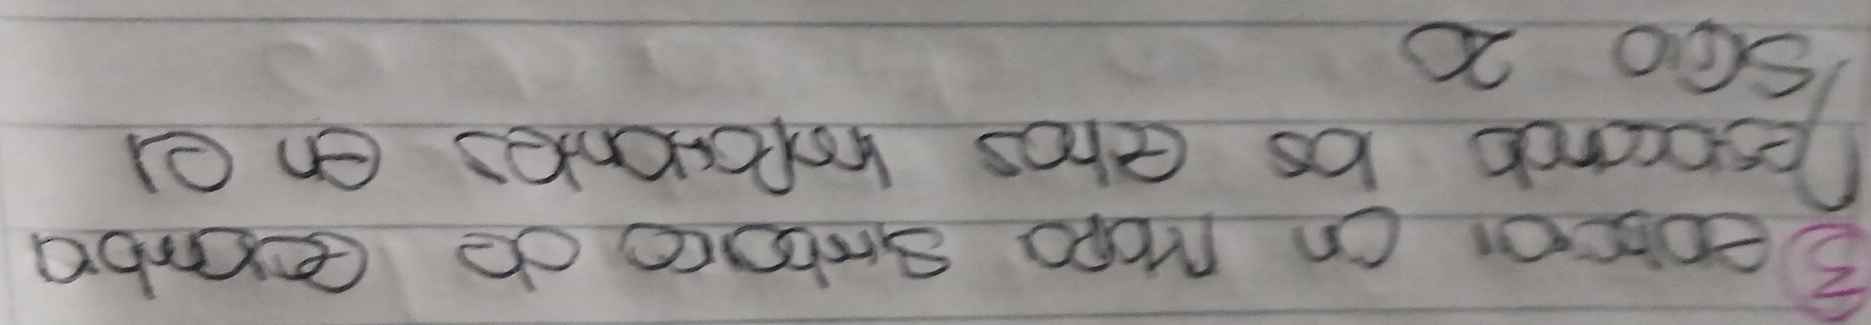 ② elaborar un Mapa Simbolico de Colombia
resaltando los echos importantes en el
siGlo 20